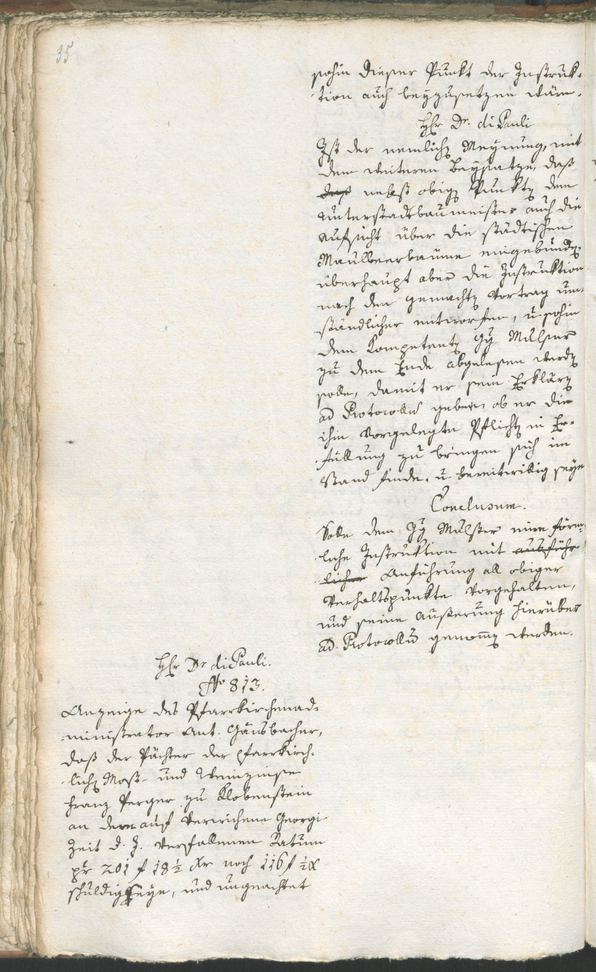 35
sohin dieser Punkt der Instruk-
tion auch beyzusetzen wäre.
Hr Dr. di Pauli
Ist der nemlich Meynung, mit
dem weiteren Beysatze, daß
daß nebst obig Punkt dem
Unterstadtbaumeister auch die
Aufsicht über die städtischen
Maulbeerbäume eingebunden
überhaupt aber die Instruktion
nach dem gemacht Vortrag um-
ständlicher entworfen, u sohin
dem Kompetent Gg Mulser
zu dem Ende abgelesen werd
solle, damit er sein Erklär
ad Protocoll geben, ob er die
ihm vorgelegte Pflicht in Er-
füllung zu bringen sich im
Stand finde, u bereitwillig seye
Conclusum.
Solle dem Gg Mulser eine förm-
liche Instruktion mit ausführ-
licher Anführung all obiger
Verhaltspunkte vorgehalten,
und seine Äußerung hierüber
ad Protocollu genomm werden.
Hr Dr di Pauli.
No 813.
Anzeige des Pfarrkirchenad-
ministrator Ant. Gänsbacher,
daß der Pächter der Pfarrkirch-
lich Most- und Weinzinse
Franz Perger zu Klobenstein
an dem auf verwichene Georgi
Zeit d. J. verfallenen Ratum
pr 201 f 18½ Xr noch 116 f ½ X
schuldig seye, und ungeachtet